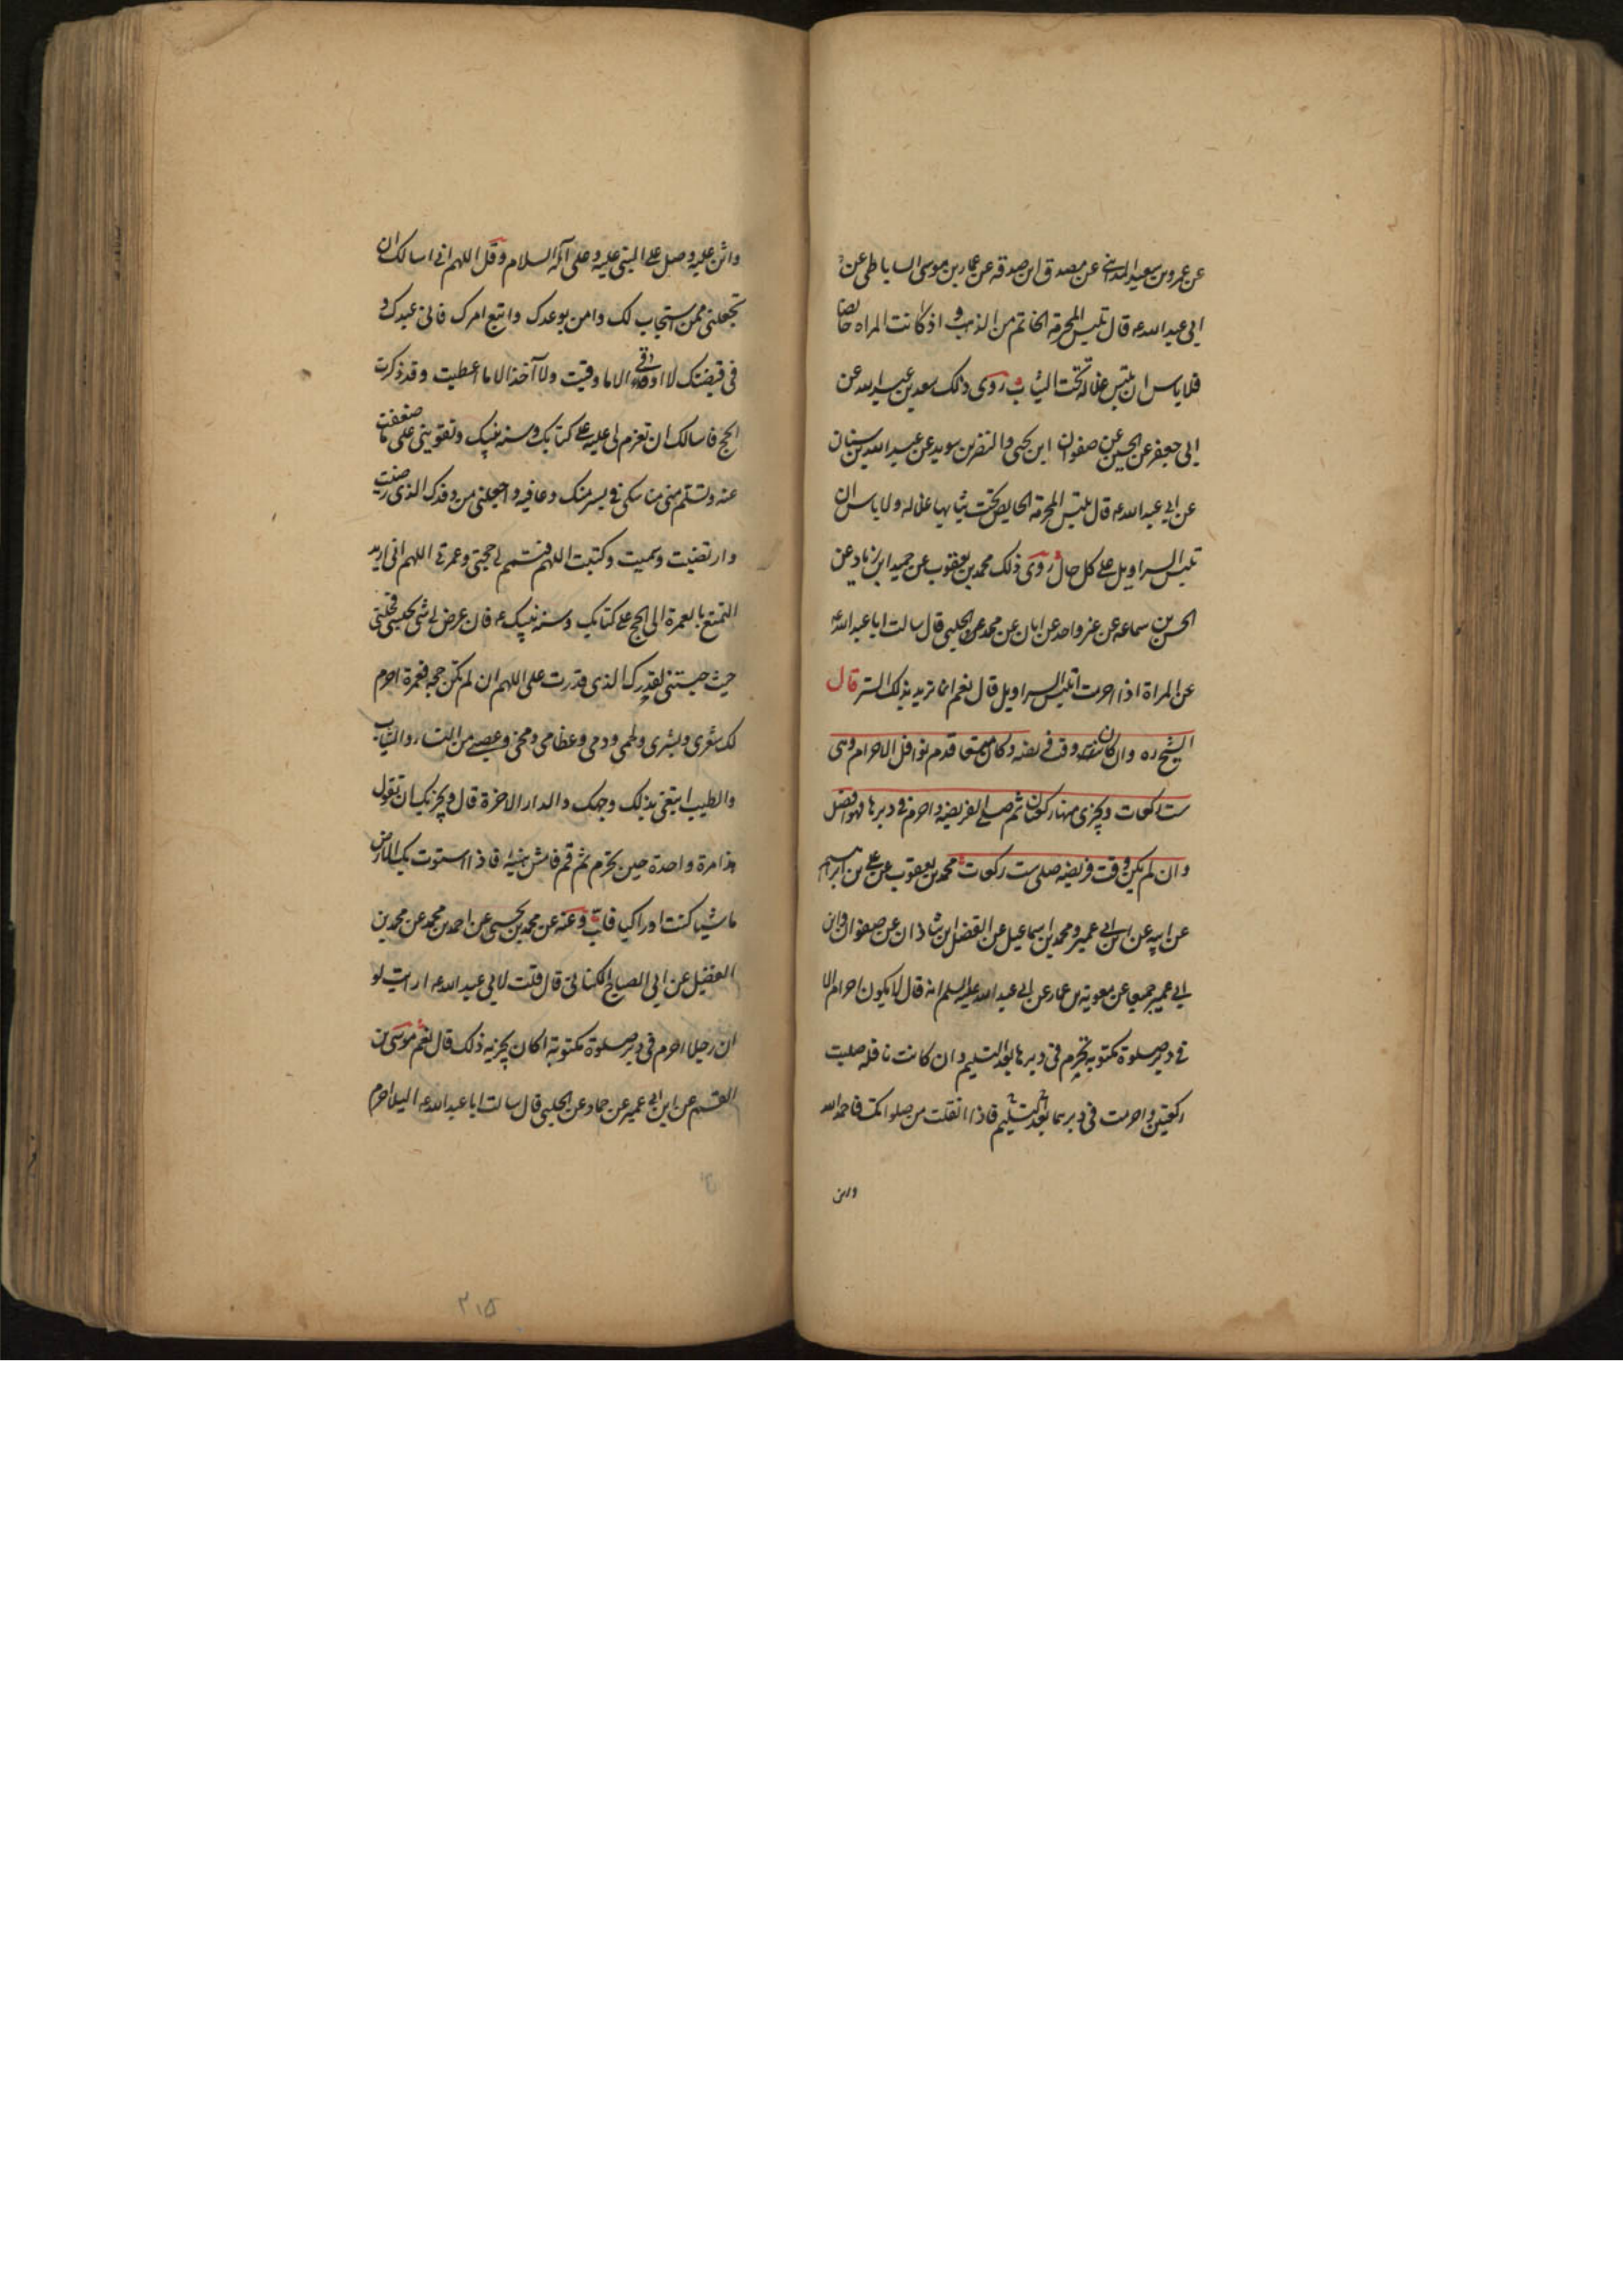 عن عمرو بن سعيد المدائني عن مصدق ابن صدقه عن عمار بن موسى الساباطي عن
ابي عبد الله ع قال تلبس المحرمة الخاتم من الذهب و اذ كانت المراه حائضا
فلا باس ان تلبس غلالة تحت الثياب روى ذلك سعد بن عبد الله عن
ابي جعفر عن الحسين عن صفوان ابن يحيى والنضر بن سويد عن عبد الله بن سنان
عن ابي عبد الله ع قال تلبس المحرمة الحايض تحت ثيابها غلاله ولا باس ان
تلبس السراويل على كل حال روى ذلك محمد بن يعقوب عن حميد ابن زياد عن
الحسن بن سماعه عن غير واحد عن ابان عن محمد الحلبي قال سالت ابا عبد الله ع
عن المراة اذا احرمت اتلبس السراويل قال نعم انما تريد بذلك الستر قال
الشيخ ره وان كان وقت فريضه وكان متسعا قدم نوافل الاحرام وهى
ست ركعات ويجزى منها ركعتان ثم صلى الفريضه واحرم في دبرها فهو افضل
وان لم يكن وقت فريضه صلى ست ركعات محمد بن يعقوب عن علي بن ابراهيم
عن ابيه عن ابن ابي عمير ومحمد ابن اسماعيل عن الفضل ابن شاذان عن صفوان وابن
ابي عمير جميعا عن معوية بن عمار عن ابي عبد الله عليه السلم انه قال لا يكون احرام الا
في دبر صلوة مكتوبة تحرم في دبرها بعد التسليم وان كانت نافله صليت
ركعتين واحرمت في دبرهما بعد التسليم فاذا انفتلت من صلواتك فاحمد الله
واثن
واثن عليه وصل على النبي عليه وعلى آله السلام وقل اللهم اني اسالك ان
تجعلني ممن استجاب لك وامن بوعدك واتبع امرك فاني عبدك و
في قبضتك لا اوقى الا ما وقيت ولا آخذ الا ما اعطيت وقد ذكرت
الحج فاسالك ان تعزم لي عليه على كتابك وسنه نبيك وتقويني على ما ضعفت
عنه وتسلم مني مناسكي في يسر منك وعافيه واجعلني من وفدك الذي رضيت
وارتضيت وسميت وكتبت اللهم فتمم لي حجتي وعمرتي اللهم اني اريد
التمتع بالعمرة الى الحج على كتابك وسنه نبيك ع فان عرض لي شي يحبسني فحلني
حيث حبستني لقدرك الذي قدرت علي اللهم ان لم تكن حجه فعمرة احرم
لك شعري وبشري ولحمي ودمي وعظامي ومخي وعصبي من النساء والثياب
والطيب ابتغي بذلك وجهك والدار الاخرة قال ويجزيك ان تقول
هذا مرة واحدة حين تحرم ثم قم فامش هنيئة فاذا استوت بك الارض
ماشيا كنت او راكبا فلب وعنه عن محمد بن يحيى عن احمد بن محمد عن محمد بن
الفضيل عن ابي الصباح الكناني قال قلت لابي عبد الله ع ارايت لو
ان رجلا احرم في دبر صلوة مكتوبة اكان يجزيه ذلك قال نعم موسى بن
القسم عن ابن ابي عمير عن حماد عن الحلبي قال سالت ابا عبد الله ع اليلا احرم
٢١٥